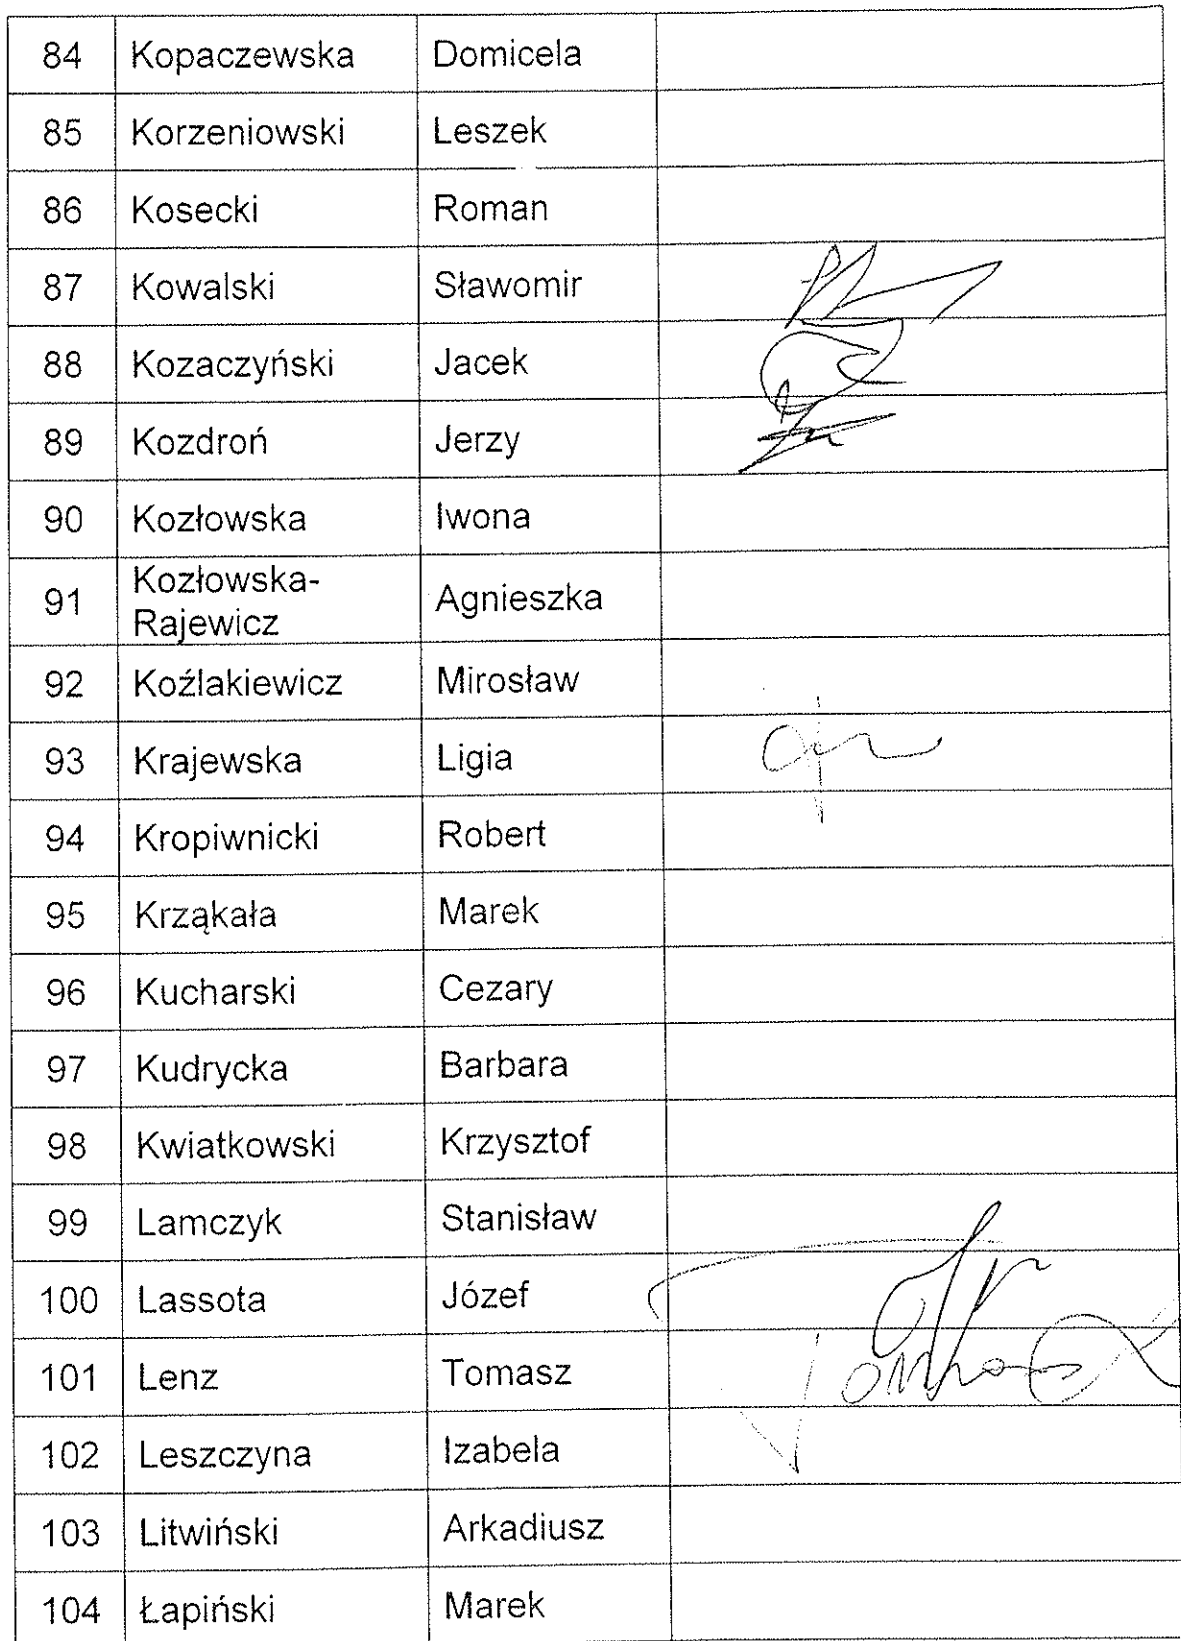 84 Kopaczewska Domicela
85 Korzeniowski Leszek
86 Kosecki Roman
87 Kowalski Sławomir
88 Kozaczyński Jacek
89 Kozdroń Jerzy
90 Kozłowska Iwona
91 Kozłowska-
Rajewicz Agnieszka
92 Koźlakiewicz Mirosław
93 Krajewska Ligia
94 Kropiwnicki Robert
95 Krząkała Marek
96 Kucharski Cezary
97 Kudrycka Barbara
98 Kwiatkowski Krzysztof
99 Lamczyk Stanisław
100 Lassota Józef
101 Lenz Tomasz
102 Leszczyna Izabela
103 Litwiński Arkadiusz
104 Łapiński Marek